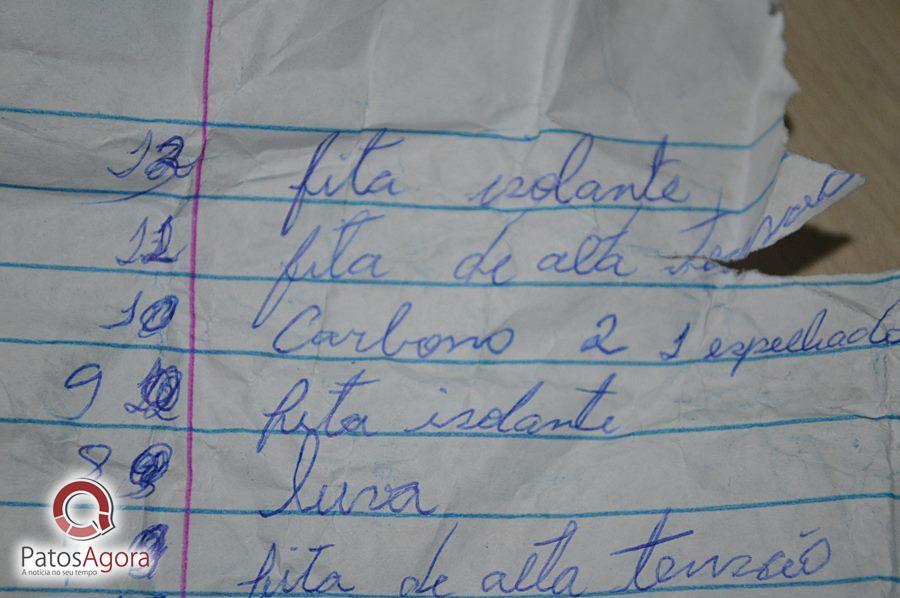 12 fita isolante
11 fita de alta tensão
10 Carbono 2 1 espelhado
9 fita isolante
8 luva
fita de alta tensão
PatosAgora
A notícia no seu tempo